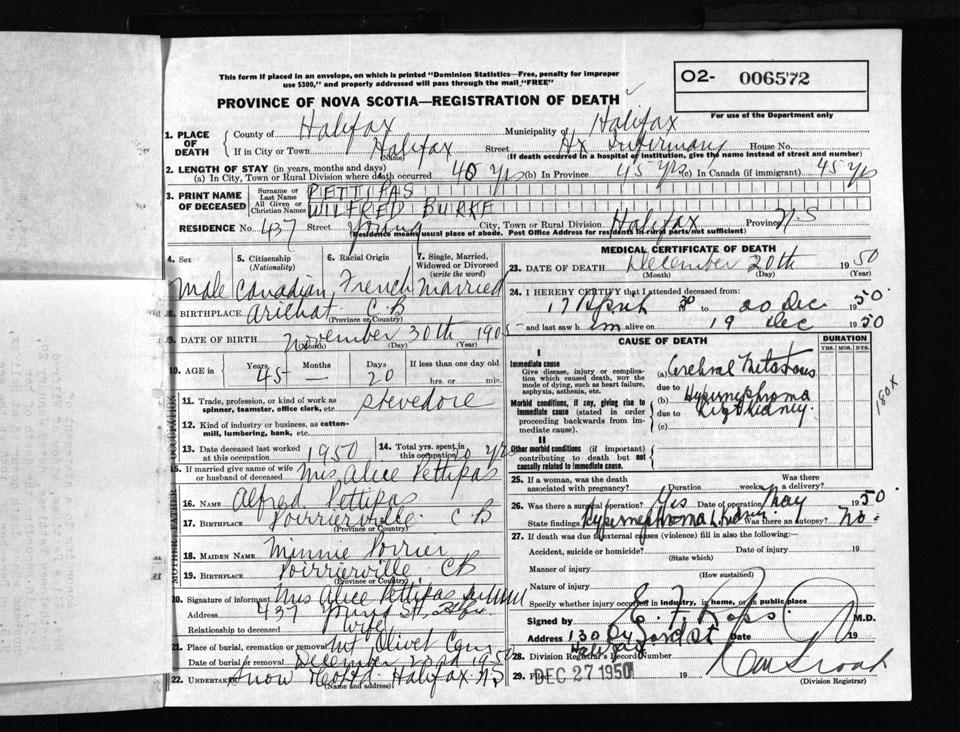 This form if placed in an envelope, on which is printed "Dominion Statistics—Free, penalty for improper
use $300," and properly addressed will pass through the mail "FREE"
O2- 006572
PROVINCE OF NOVA SCOTIA—REGISTRATION OF DEATH
For use of the Department only
1. PLACE OF DEATH
County of Halifax Municipality of Halifax
If in City or Town Halifax Street Hx Infirmary House No.
(Name) (If death occurred in a hospital or institution, give the name instead of street and number)
2. LENGTH OF STAY (in years, months and days)
(a) In City, Town or Rural Division where death occurred 40 yrs (b) In Province 45 yrs (c) In Canada (if immigrant) 45 yrs
3. PRINT NAME OF DECEASED
Surname or Last Name PETTIPAS
All Given or Christian Names WILFRED BURKE
RESIDENCE No. 437 Street Young City, Town or Rural Division Halifax Province N.S
(Residence means usual place of abode. Post Office Address for residents in rural parts not sufficient)
4. Sex 5. Citizenship (Nationality) 6. Racial Origin 7. Single, Married, Widowed or Divorced (write the word)
Male Canadian French Married
8. BIRTHPLACE Arichat C.B
(Province or Country)
9. DATE OF BIRTH November 30th 1905
(Month) (Day) (Year)
10. AGE in Years Months Days If less than one day old
45 — 20 hrs. or min.
OCCUPATION
11. Trade, profession, or kind of work as spinner, teamster, office clerk, etc. Stevedore
12. Kind of industry or business, as cotton-mill, lumbering, bank, etc.
13. Date deceased last worked at this occupation 1950
14. Total yrs. spent in this occupation 20 yrs
15. If married give name of wife or husband of deceased Mrs Alice Pettipas
FATHER
16. NAME Alfred Pettipas
17. BIRTHPLACE Poirrierville C B
(Province or Country)
MOTHER
18. MAIDEN NAME Minnie Poirier
19. BIRTHPLACE Poirrierville, CB
(Province or Country)
20. Signature of informant Mrs Alice Pettipas
Address 437 Young St.
Relationship to deceased Wife
21. Place of burial, cremation or removal Mt Olivet Cem
Date of burial or removal December 22nd 1950
22. UNDERTAKER Snow & Co Ltd. Halifax N.S
(Name and address)
MEDICAL CERTIFICATE OF DEATH
23. DATE OF DEATH December 20th 1950
(Month) (Day) (Year)
24. I HEREBY CERTIFY that I attended deceased from:
17 April 50 to 20 Dec 1950.
and last saw him alive on 19 Dec 1950
CAUSE OF DEATH DURATION
YRS. MOS. DYS.
I
Immediate cause
Give disease, injury or complication which caused death, not the mode of dying, such as heart failure, asphyxia, asthenia, etc.
(a) Cerebral Metastases
due to
Morbid conditions, if any, giving rise to immediate cause (stated in order proceeding backwards from immediate cause).
(b) Hypernephroma
due to Rig Kidney.
(c)
180X
II
Other morbid conditions (if important) contributing to death but not causally related to immediate cause.
25. If a woman, was the death associated with pregnancy? Duration weeks Was there a delivery?
26. Was there a surgical operation? Yes Date of operation May 1950.
State findings Hypernephroma Kidney Was there an autopsy? No.
27. If death was due to external causes (violence) fill in also the following:—
Accident, suicide or homicide? Date of injury 19
(State which)
Manner of injury
(How sustained)
Nature of injury
Specify whether injury occurred in industry, in home, or in public place
Signed by E. F. Ross M.D.
Address 130 Oxford St Date 19
Halifax
28. Division Registrar's Record Number
29. Filed DEC 27 1950 19
(Division Registrar)